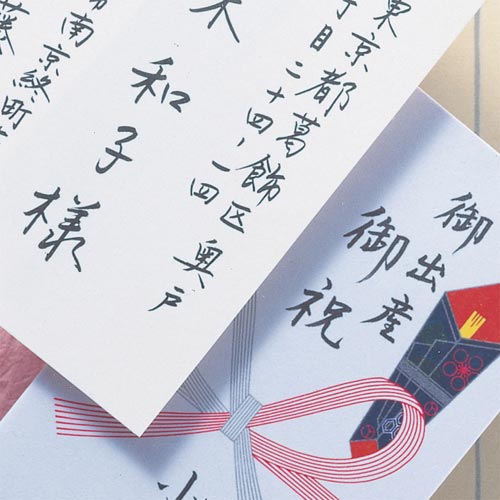 東京都葛飾区奥戸
丁目二十四、一四
木和子様
南京終町
藤
御出産
御祝